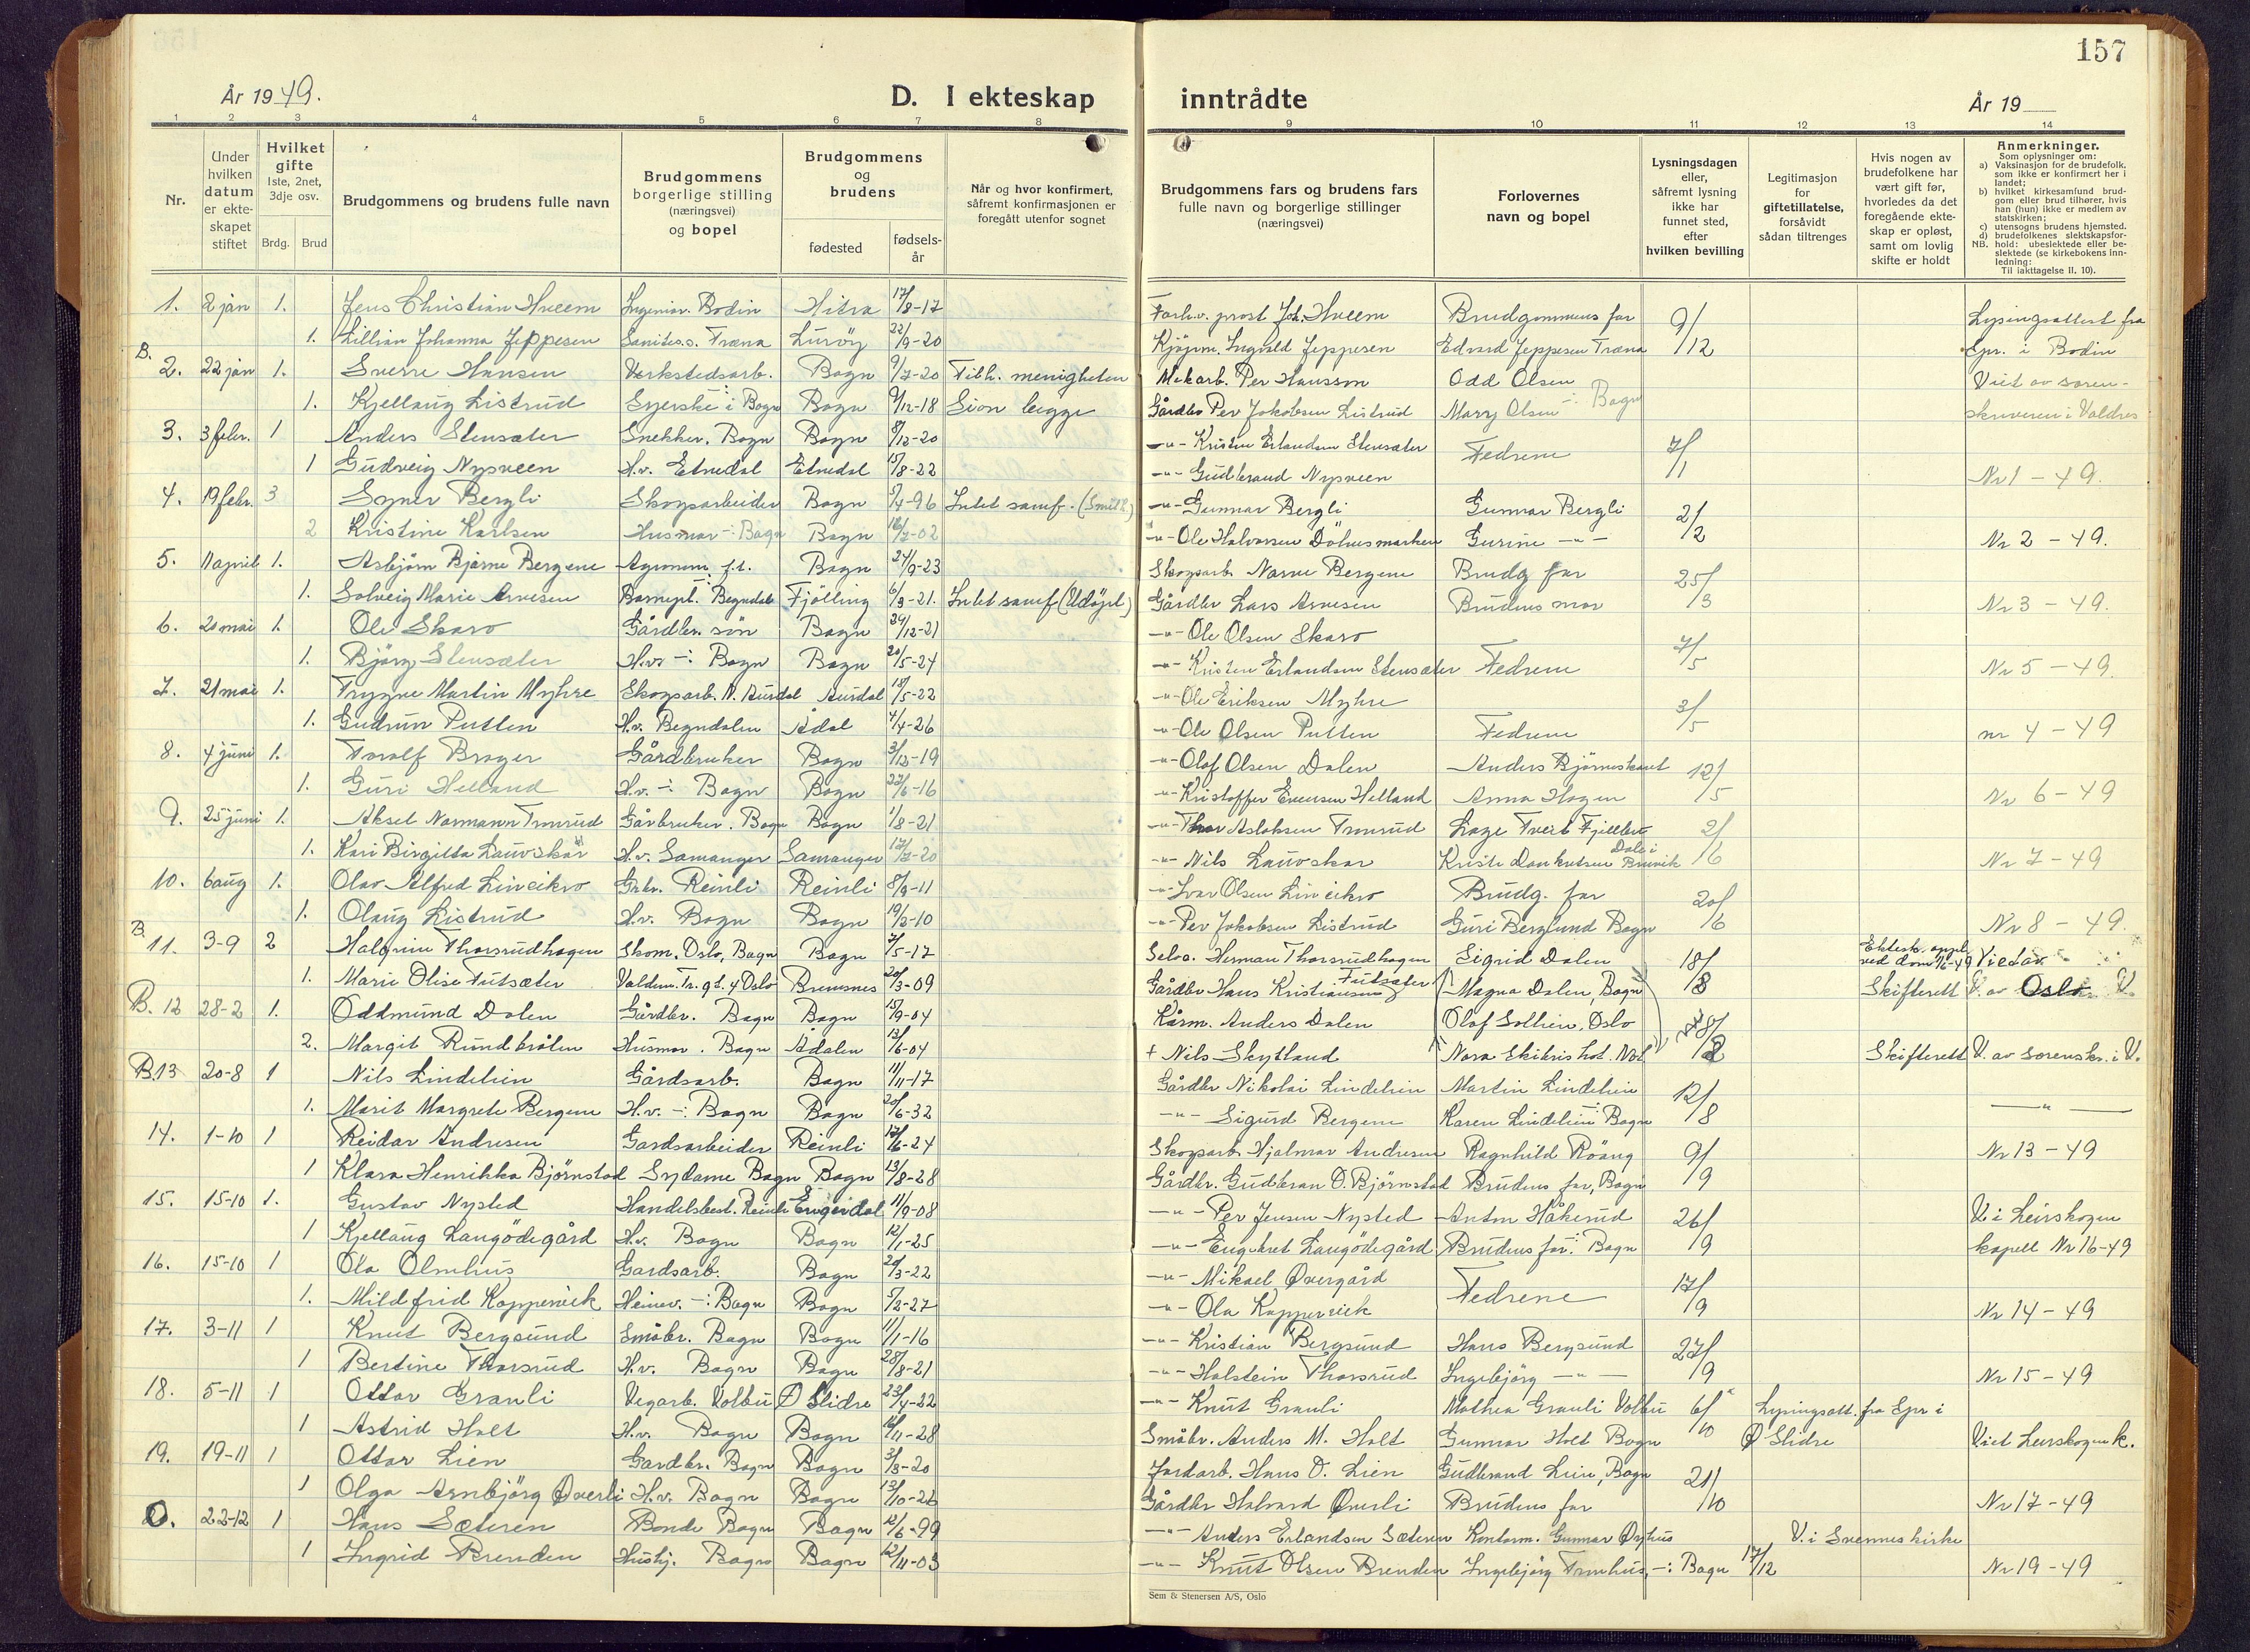 157
År 1949.
D. I ekteskap
inntrådte
År 19
1 2 3 4 5 6 7 8 9 10 11 12 13 14
Nr.
Under hvilken datum er ekteskapet stiftet
Hvilket gifte Iste, 2net, 3dje osv.
Brdg. Brud
Brudgommens og brudens fulle navn
Brudgommens borgerlige stilling (næringsvei) og bopel
Brudgommens og brudens
fødested
fødsels-år
Når og hvor konfirmert, såfremt konfirmasjonen er foregått utenfor sognet
Brudgommens fars og brudens fars fulle navn og borgerlige stillinger (næringsvei)
Forlovernes navn og bopel
Lysningsdagen eller, såfremt lysning ikke har funnet sted, efter hvilken bevilling
Legitimasjon for giftetillatelse, forsåvidt sådan tiltrenges
Hvis nogen av brudefolkene har vært gift før, hvorledes da det foregående ekteskap er opløst, samt om lovlig skifte er holdt
Anmerkninger.
Som oplysninger om:
a) Vaksinasjon for de brudefolk. som ikke er konfirmert her i landet;
b) hvilket kirkesamfund brudgom eller brud tilhører, hvis han (hun) ikke er medlem av statskirken;
c) utensogns brudens hjemsted.
d) brudefolkenes slektskapsforhold: ubeslektede eller beslektede (se kirkebokens innledning:
NB. Til iakttagelse II. 10).
1. 2 jan 1. Jens Christian Hveem Ingeniør. Bodin Hitra 17/8-17 Forh.v. prost Joh. Hveem Brudgommens far 9/12 Lysingsattest fra
1. Lillian Johanna Jeppesen Træna Lurøy 22/9-20 Kjøpm. Ingvald Jeppesen Edvard Jeppesen Træna Spr. i Bodin
B. 2. 22 jan 1. Sverre Hansen Verkstedsarb. Bagn 9/7-20 Tilh. menigheten Mekarb. Per Hansson Odd Olsen Viet av soren-
1. Kjellaug Listrud Syerske i Bagn Bagn 9/12-18 Sion begge Gårdbr Per Jakobsen Listrud Mary Olsen -:- Bagn skriveren i Valdres
3. 3 febr. 1 Anders Stensæter Snekker. Bagn Bagn 8/12-20 -"- Kristen Erlandsen Stensæter Fedrene 7/1
1 Gudveig Nysveen H.v. Etnedal Etnedal 15/8-22 -"- Gudbrand Nysveen Nr 1 - 49.
4. 19 febr. 3 Syver Bergli Skogsarbeider Bagn 5/4-96 Intet samf. (Smith) -"- Gunnar Bergli Gunnar Bergli 2/2
2 Kristine Karlsen Husmor -:- Bagn Bagn 16/7-02 -"- Ole Halvorsen Dölvesmarken Gurine -"- Nr 2 - 49.
5. 11 april 1. Asbjörn Bjarne Bergene Agronom f.t. Bagn 24/9-23 Skogsarb. Narve Bergene Brudg far 25/3
1. Solveig Marie Arvesen Barnepl. Begndal Fjölling 6/3-21. Intet samf (Udöpt) Gårdbr Lars Arvesen Brudens mor Nr 3 - 49.
6. 20 mai 1. Ole Skaro Gårdbr. sön Bagn 29/12-21 -"- Ole Olsen Skaro 7/5
1. Björg Stensæter H.v. -:- Bagn Bagn 20/5-24 -"- Kristen Erlandsen Stensæter Fedrene Nr 5 - 49.
7. 21 mai 1. Trygve Martin Myhre Skogsarb. N. Aurdal Aurdal 18/5-22 -"- Ole Eriksen Myhre 3/5
1. Gudrun Putten H.v. Begndalen Ådal 4/4-26 -"- Ole Olsen Putten Fedrene nr 4 - 49
8. 4 juni 1. Torolf Brager Gårdbruker Bagn 3/12-19 -"- Olof Olsen Dalen Anders Björneskaret 12/5
1. Guri Helland H.v. -:- Bagn Bagn 27/6-16 -"- Kristoffer Evensen Helland Anna Hagen Nr 6 - 49
9. 25 juni 1. Aksel Normann Tronrud Gårbruker. Bagn Bagn 1/8-21 -"- Thor Aslaksen Tronrud Lage Tveit Fjellbu 2/6
1. Kari Birgitta Lauvskar H.v. Samanger Samanger 17/7-20 -"- Nils Lauvskar Nr 7 - 49
10. 6 aug 1. Olav Alfred Lineikro Grbr. Reinli Reinli 8/9-11 -"- Ivar Olsen Lineikro Brudg. far 20/6
1. Olaug Listrud H.v. Bagn Bagn 19/2-10 -"- Per Jakobsen Listrud Guri Berglund Bagn Nr 8 - 49.
B. 11. 3-9 2 Halgrim Thorsrudhagen Skom. Oslo, Bagn Bagn 7/5-17 Selve. Herman Thorsrudhagen Sigrid Dalen 18/8 Ektesk. oppl. ved dom 16-49 Viet av
1. Marie Olise Futsæter Valdem. Tr. gt. 4 Oslo Bremsnes 20/3-09 Gårdbr Hans Kristiansen Futsæter Magna Dalen, Bagn Skifterett V. av Oslo
B. 12 28-2 1. Oddmund Dalen Gårdbr. Bagn Bagn 15/9-04 Kårm. Anders Dalen Olaf Solhein, Oslo 18/2
2. Margit Rundbråten Husmor. Bagn Ådalen 13/6-04 + Nils Skytland Nora Skibrishot. Skifterett V. av sorenskr. i V.
B. 13 20-8 1 Nils Lindelien Gårdsarb. Bagn 11/11-17 Gårdbr Nikolai Lindelien Martin Lindelien 12/8
1. Marit Margrete Bergene H.v. -:- Bagn Bagn 20/6-32 -"- Sigurd Bergene Karen Lindelien -:- Bagn -"-
14. 1-10 1 Reidar Andresen Gardsarbeider Reinli 17/6-24 Skogsarb. Hjalmar Andresen Ragnhild Röang 9/9 Nr 13 - 49
1 Klara Henrikka Bjørnstad Sydame Bagn Bagn 13/8-28 Gårdbr. Gudbran O. Björnstad Brudens far, Bagn
15. 15-10 1. Gustav Nysted Handelsbest. Reinli Engerdal 11/9-08 -"- Per Jensen Nysted Anton Håkerud 26/9 V. i Leirskogen
1 Kjellaug Langödegård H.v. Bagn Bagn 12/1-25 -"- Engebret Langödegård Brudens far -:- Bagn kapell Nr 16-49
16. 15-10 1 Ola Olmhus Gardsarb. Bagn 20/3-22 -"- Mikael Overgård Fedrene 17/9
1. Mildfrid Koppervik Heimev. -:- Bagn Bagn 5/2-27 -"- Ola Koppervik Nr 14 - 49
17. 3-11 1 Knut Bergsund Småbr. Bagn Bagn 11/1-16 -"- Kristian Bergsund Hans Bergsund 27/9
1 Bertine Thorsrud H.v. Bagn Bagn 28/8-21 -"- Holstein Thorsrud Ingebjörg -"- Nr 15 - 49
18. 5-11 1 Ottar Granli Vegarb. Volbu Ø Slidre 23/4-22 -"- Knut Granli Mathea Granli Volbu 6/10 Lysingsatt. fra Spr i
1 Astrid Holt H.v. Bagn Bagn 16/11-28 Småbr. Anders M. Holt Gunnar Holt Bagn Ø Slidre Viet Leirskogen k.
19. 19-11 1 Ottar Lien Gardbr. Bagn Bagn 3/8-20 Jordarb. Hans O. Lien Gudbrand Lien, Bagn 21/10
1 Olga Arnbjörg Øverli H.v. Bagn Bagn 13/10-26 Gårdbr Halvard Øverli Brudens far Nr 17 - 49
0. 22-12 1 Hans Sæteren Bonde Bagn Bagn 12/6-99 -"- Anders Erlandsen Sæteren Kontorm. Gunnar V. i Svenneskirke
1 Ingrid Brenden Hushj. Bagn Bagn 12/11-03 -"- Knut Olsen Brenden Ingebjörg Tronhus -:- Bagn 17/12 Nr 19 - 49
Sem & Stenersen A/S, Oslo